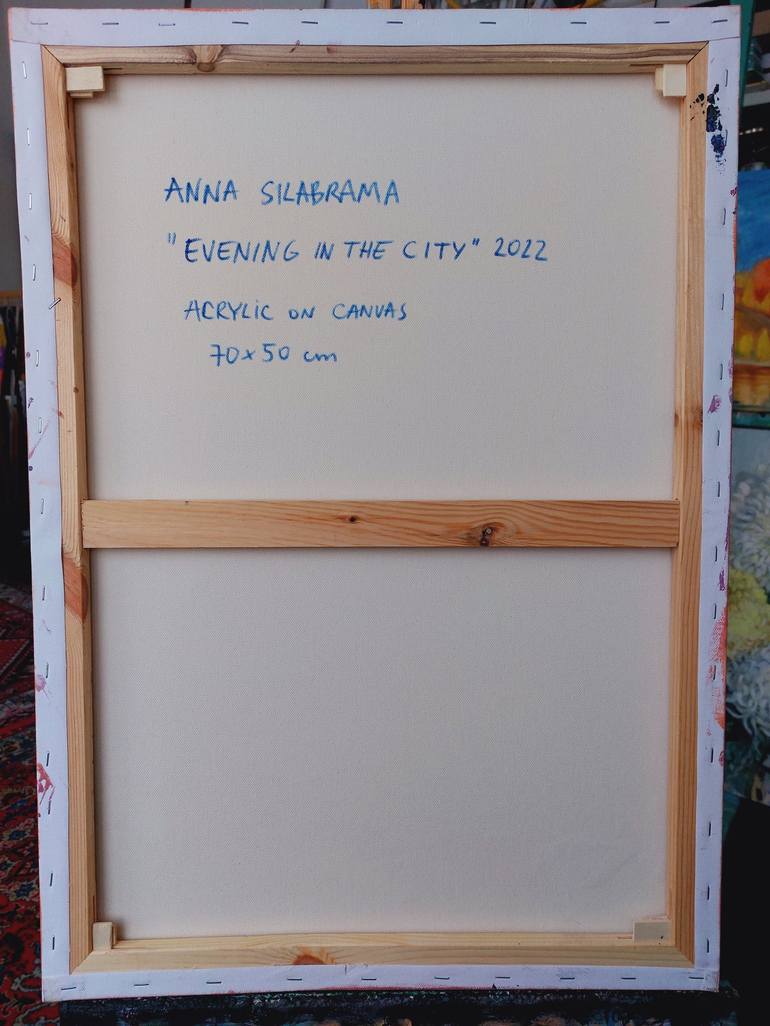 ANNA SILABRAMA
"EVENING IN THE CITY" 2022
ACRYLIC ON CANVAS
70x50 cm